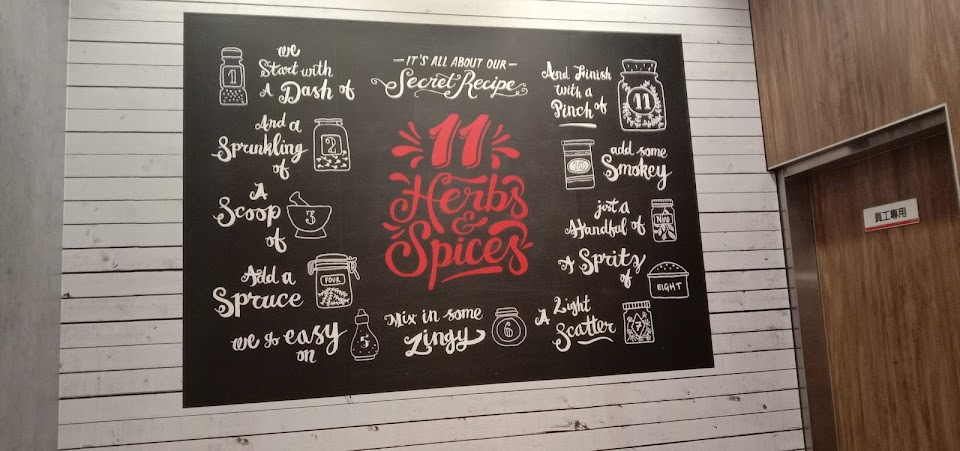 — IT'S ALL ABOUT OUR —
Secret Recipe
11
Herbs
&
Spices
we
Start with
A Dash of
1
And a
Sprinkling
of
2
A
Scoop
of
3
Add a
Spruce
FOUR
we go easy
on
5
Mix in some
Zingy
6
A Light
Scatter
7
A Spritz
of
EIGHT
just a
Handful of
Nine
add some
Smokey
And Finish
with a
Pinch of
11
員工專用